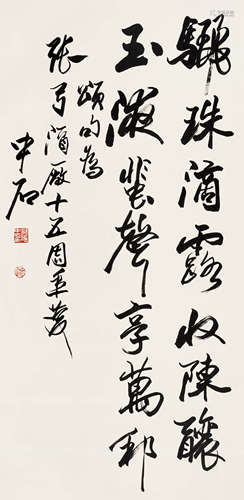 驪珠滴露收陳釀
玉液蜚聲享萬邦
頌句為
張弓酒厰十五周年慶
中石